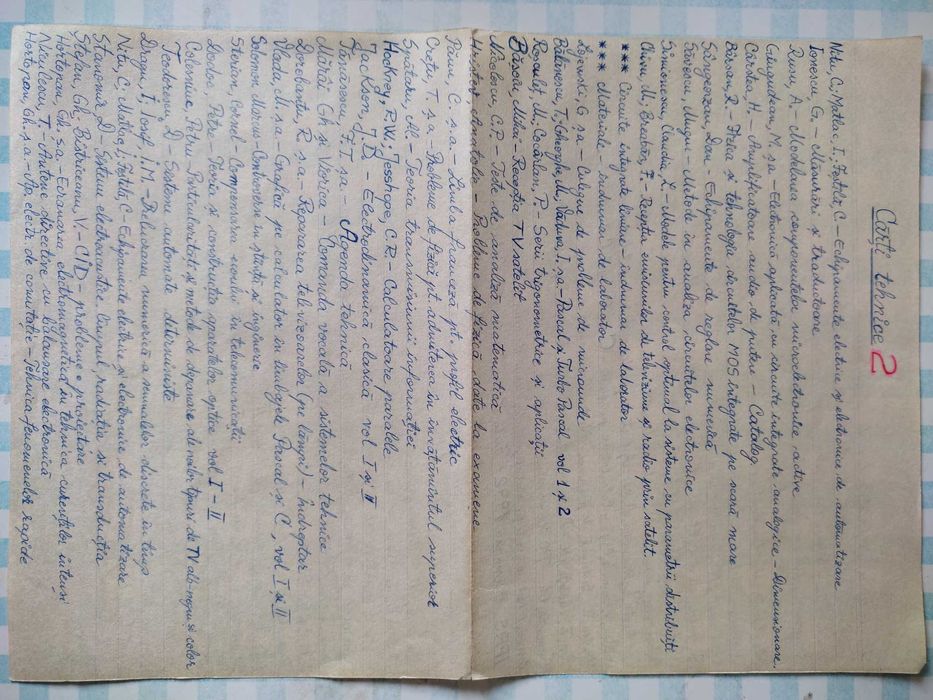 Cărți tehnice 2
Nițu C., Matlac I., Feștilă C – Echipamente electrice și electronice de automatizare
Ionescu G. – Măsurări și traductoare
Rusu, A – Modelarea componentelor microelectronice active
Gîngudean, M, șa – Electronică aplicată cu circuite integrate analogice – Dimensionare.
Cârstea, H. – Amplificatoare audio de putere – Catalog
Bârsan, R – Fizica și tehnologia circuitelor MOS integrate pe scară mare
Sângeorzan Dan – Echipamente de reglare numerică
Săvescu, Mugur – Metode în analiza circuitelor electronice
Simionescu, Claudia L – Modele pentru control optimal la sisteme cu parametri distribuiți
Chivu M, Breaban, F – Recepția emisiunilor de televiziune și radio prin satelit.
*** Circuite integrate liniare – îndrumar de laborator
*** Materiale – îndrumar de laborator
Lojewski, G ș.a – Culegere de probleme de microunde
Bălănescu, T, Gheorghe, M, Văduva, I ș.a – Pascal și Turbo Pascal vol 1 și 2
Roșculeț, M, Cocârlan, P – Serii trigonometrice și aplicații
Băsoiu, Mihai – Recepția TV satelit
Nicolescu, C.P – Teste de analiză matematică
Hristev, Anatolie – Probleme de fizică date la examene –
Păun, C. ș.a – Limba franceză pt. profil electric
Crețu, T. ș.a – Probleme de fizică pt. admiterea în învățământul superior
Spătaru, Al – Teoria transmisiunii informației
Hockney, R.W; Jesshope, C.R – Calculatoare paralele
Jackson, J.D – Electrodinamică clasică vol I și II
Tănăsoiu, F.T ș.a – Agenda tehnică
Mitră Gh și Viorica – Comanda vocală a sistemelor tehnice
Zorcolanto, R. ș.a – Repararea televizoarelor (pe lămpi) – Îndreptar
Vlada, M. ș.a – Grafică pe calculator în limbajele Pascal și C, vol I și II
Solomon Marcus – Controverse în știință și inginerie
Sterian, Cornel – Compresarea vocii în telecomunicații
Dodoc, Petre – Teoria și construcția aparatelor optice vol I – II
Calaonice, Petru – Particularități și metode de depanare ale noilor tipuri de TV alb-negru și color
Teodorescu, D – Sisteme automate deterministe
Dragu, I; Iosif, I.M – Prelucrarea numerică a semnalelor discrete în timp
Nițu C; Matlac, I; Feștilă C – Echipamente electrice și electronice de automatizare
Stanomir D – Sisteme electroacustice, cîmpul, radiația și transducția
Ștefan, Gh; Bistriceanu, V – CID – probleme – proiectare
Hortopan, Gh. ș.a – Ecranarea electromagnetică în tehnica curenților intenși
Niculescu, T – Antene directive cu bălansare electronică
Hortopan, Gh. ș.a – Ap. electr. de comutație – Tehnica fenomenelor rapide